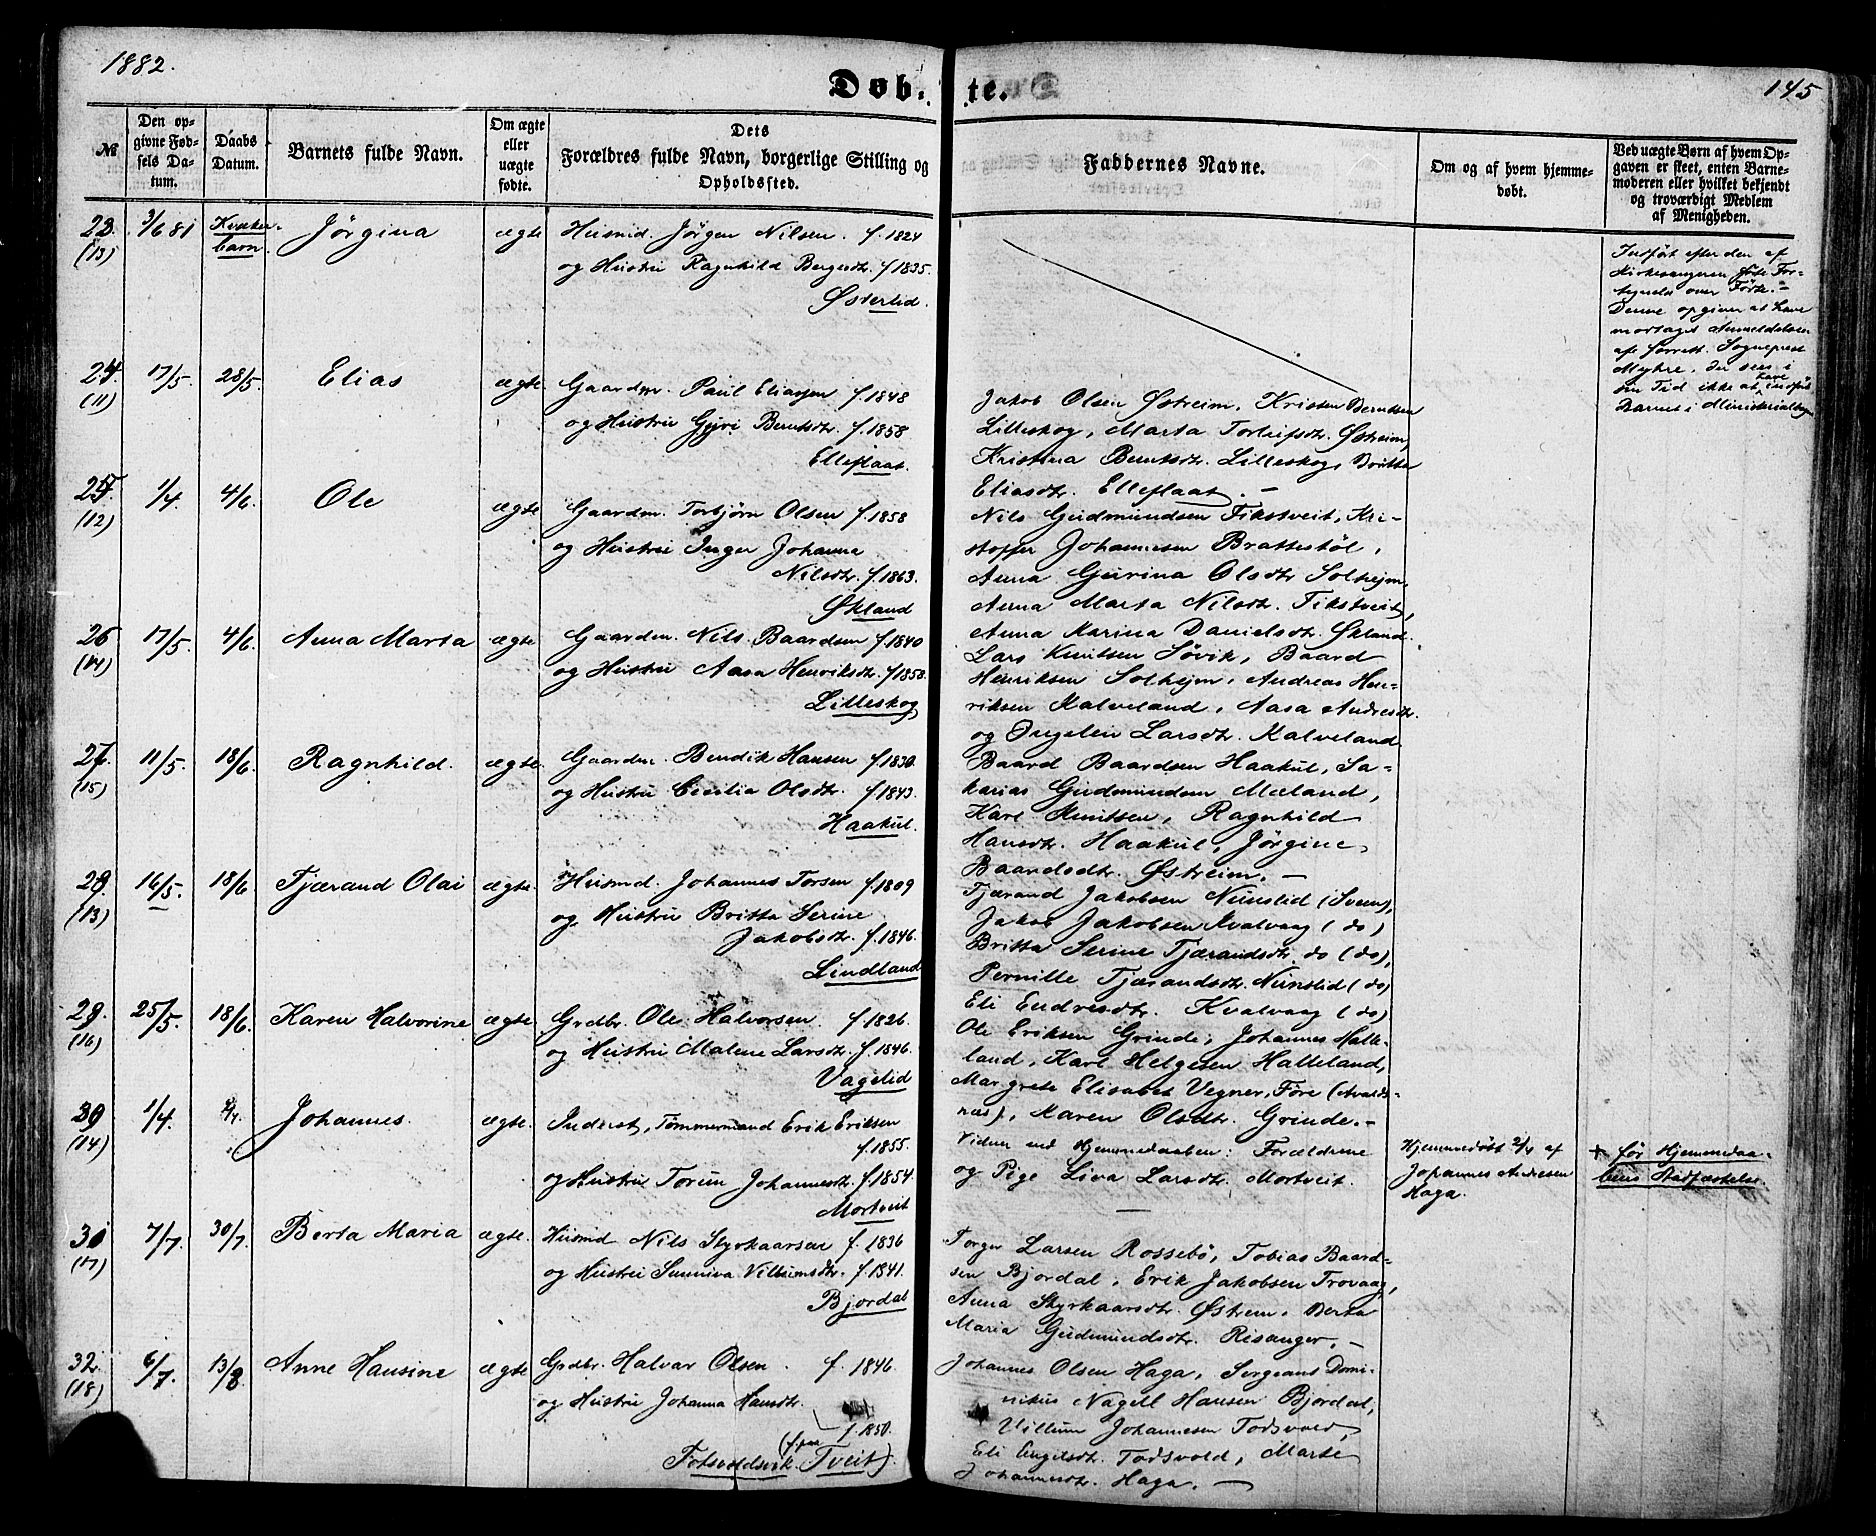 1882.
145
Døbte.
№
Den opgivne Fødsels Datum.
Daabs Datum.
Barnets fulde Navn.
Om ægte eller uægte fødte.
Dets Forældres fulde Navn, borgerlige Stilling og Opholdssted.
Faddernes Navne.
Om og af hvem hjemmedøbt.
Ved uægte Børn af hvem Opgaven er skeet, enten Barnemoderen eller hvilket bekjendt og troværdigt Medlem af Menigheden.
23. 3/6 81 Kvækerbarn. Jørgina ægte Husmd. Jørgen Nilsen. f. 1824
(13) og Hustru Ragnhild Bergesdtr. f 1835.
Østerlid.
Indført efter den af
Kirkesangeren førte For-
tegnelse over Førte.
Denne opgiver at have
modtaget Anmeldelsen
af Sogneprest
Myhre, der sees i
sin Tid ikke at have indført
Barnet i Ministerialbogen
24. 17/5. 28/5. Elias ægte Gaardm. Paul Eliassen f. 1848
(11) og Hustru Gyri Berntsdtr. f. 1858.
Elleflaat.
Jakob Olsen Østreim, Kristen Berntsen
Lilleskog, Marta Torleifsdtr. Østreim,
Kristina Berntsdtr. Lilleskog, Britta
Eliasdtr. Elleflaat. —
25. 1/4. 4/6. Ole ægte Gaardm. Torbjørn Olsen f. 1858
(12) og Hustru Inger Johanna
Nilsdtr. f. 1863.
Økland
Nils Gudmundsen Fikstveit, Kri-
stoffer Johannesen Brattestøl,
Anna Gurina Olsdtr Solheim,
Anna Marta Nilsdtr. Fikstveit,
Anna Marina Danielsdtr. Økland.
26 17/5. 4/6. Anna Marta ægte Gaardm. Nils Baardsen f. 1840
(14) og Hustru Aasa Henriksdtr. f 1858.
Lilleskog
Lars Knutsen Søvik, Baard
Henriksen Solheim, Andreas Hen-
riksen Kalveland, Aasa Andresdtr.
og Ingelin Larsdtr. Kalveland.
27. 11/5. 18/6. Ragnhild. ægte. Gaardm. Bendik Hansen f. 1830.
(15) og Hustru Cecilia Olsdtr. f. 1843.
Haakul.
Baard Baardsen Haakul, Sa-
karias Gudmundsen Mæland,
Karl Knutsen, Ragnhild
Hansdtr. Haakul, Jørgine
Baardsdtr. Østreim. —
28. 16/5. 18/6 Tjærand Olai ægte. Husmd. Johannes Torsen f. 1809
(13) og Hustru Britta Serine
Jakobsdtr. f. 1846.
Lindland
Tjærand Jakobsen Nunslid (Sveen),
Jakob Jakobsen Kvalvaag (do)
Britta Serine Tjærandsdtr. do (do),
Pernille Tjærandsdtr. Nunslid (do)
Eli Endresdtr. Kvalvaag (do)
29. 25/5. 18/6. Karen Halvorine ægte. Grdbr. Ole Halvorsen. f. 1826.
(16) og Hustru Malene Larsdtr. f. 1846.
Vagelid
Ole Eriksen Grinde, Johannes Halle-
land, Karl Helgesen Halleland,
Margrete Elisabet Vegner, Føre (Avalds-
nes), Maren Olsdtr. Grinde. —
30 1/4. Johannes. ægte. Inderst, Tømmermand Erik Eriksen
(14) f. 1855.
og Hustru Torun Johannesdtr. f. 1854.
Mortveit
Vidner ved Hjemmedaaben: Forældrene
og Pige Liva Larsdtr. Mortveit.
—
Hjemmedøbt 2/4 af
Johannes Andresen
Haga.
+ før Hjemmedaa-
bens Stadfæstelse.
31 7/7. 30/7. Berta Maria ægte. Husmd Nils Styrkaarsen f. 1836
(17) og Hustru Sunniva Villumsdtr. f. 1841.
Bjordal
Torger Larsen Rossebø, Tobias Baard-
sen Bjordal, Erik Jakobsen Trovaag,
Anna Styrkaarsdtr. Østrem, Berta
Maria Gudmundsdtr. Risanger. —
32. 6/7. 13/8 Anne Hansine ægte Grdbr. Halvar Olsen. f. 1846.
(18) og Hustru Johanna Hansdtr.
f. 1850.
Totsvoldsvik. (f. paa Tveit).
Johannes Olsen Haga, Sergeant Domi-
nikus Nagell Hansen Bjordal,
Villum Johannesen Todsvold,
Eli Engelsdtr. Todsvold, Marte
Johannesdtr. Haga. —